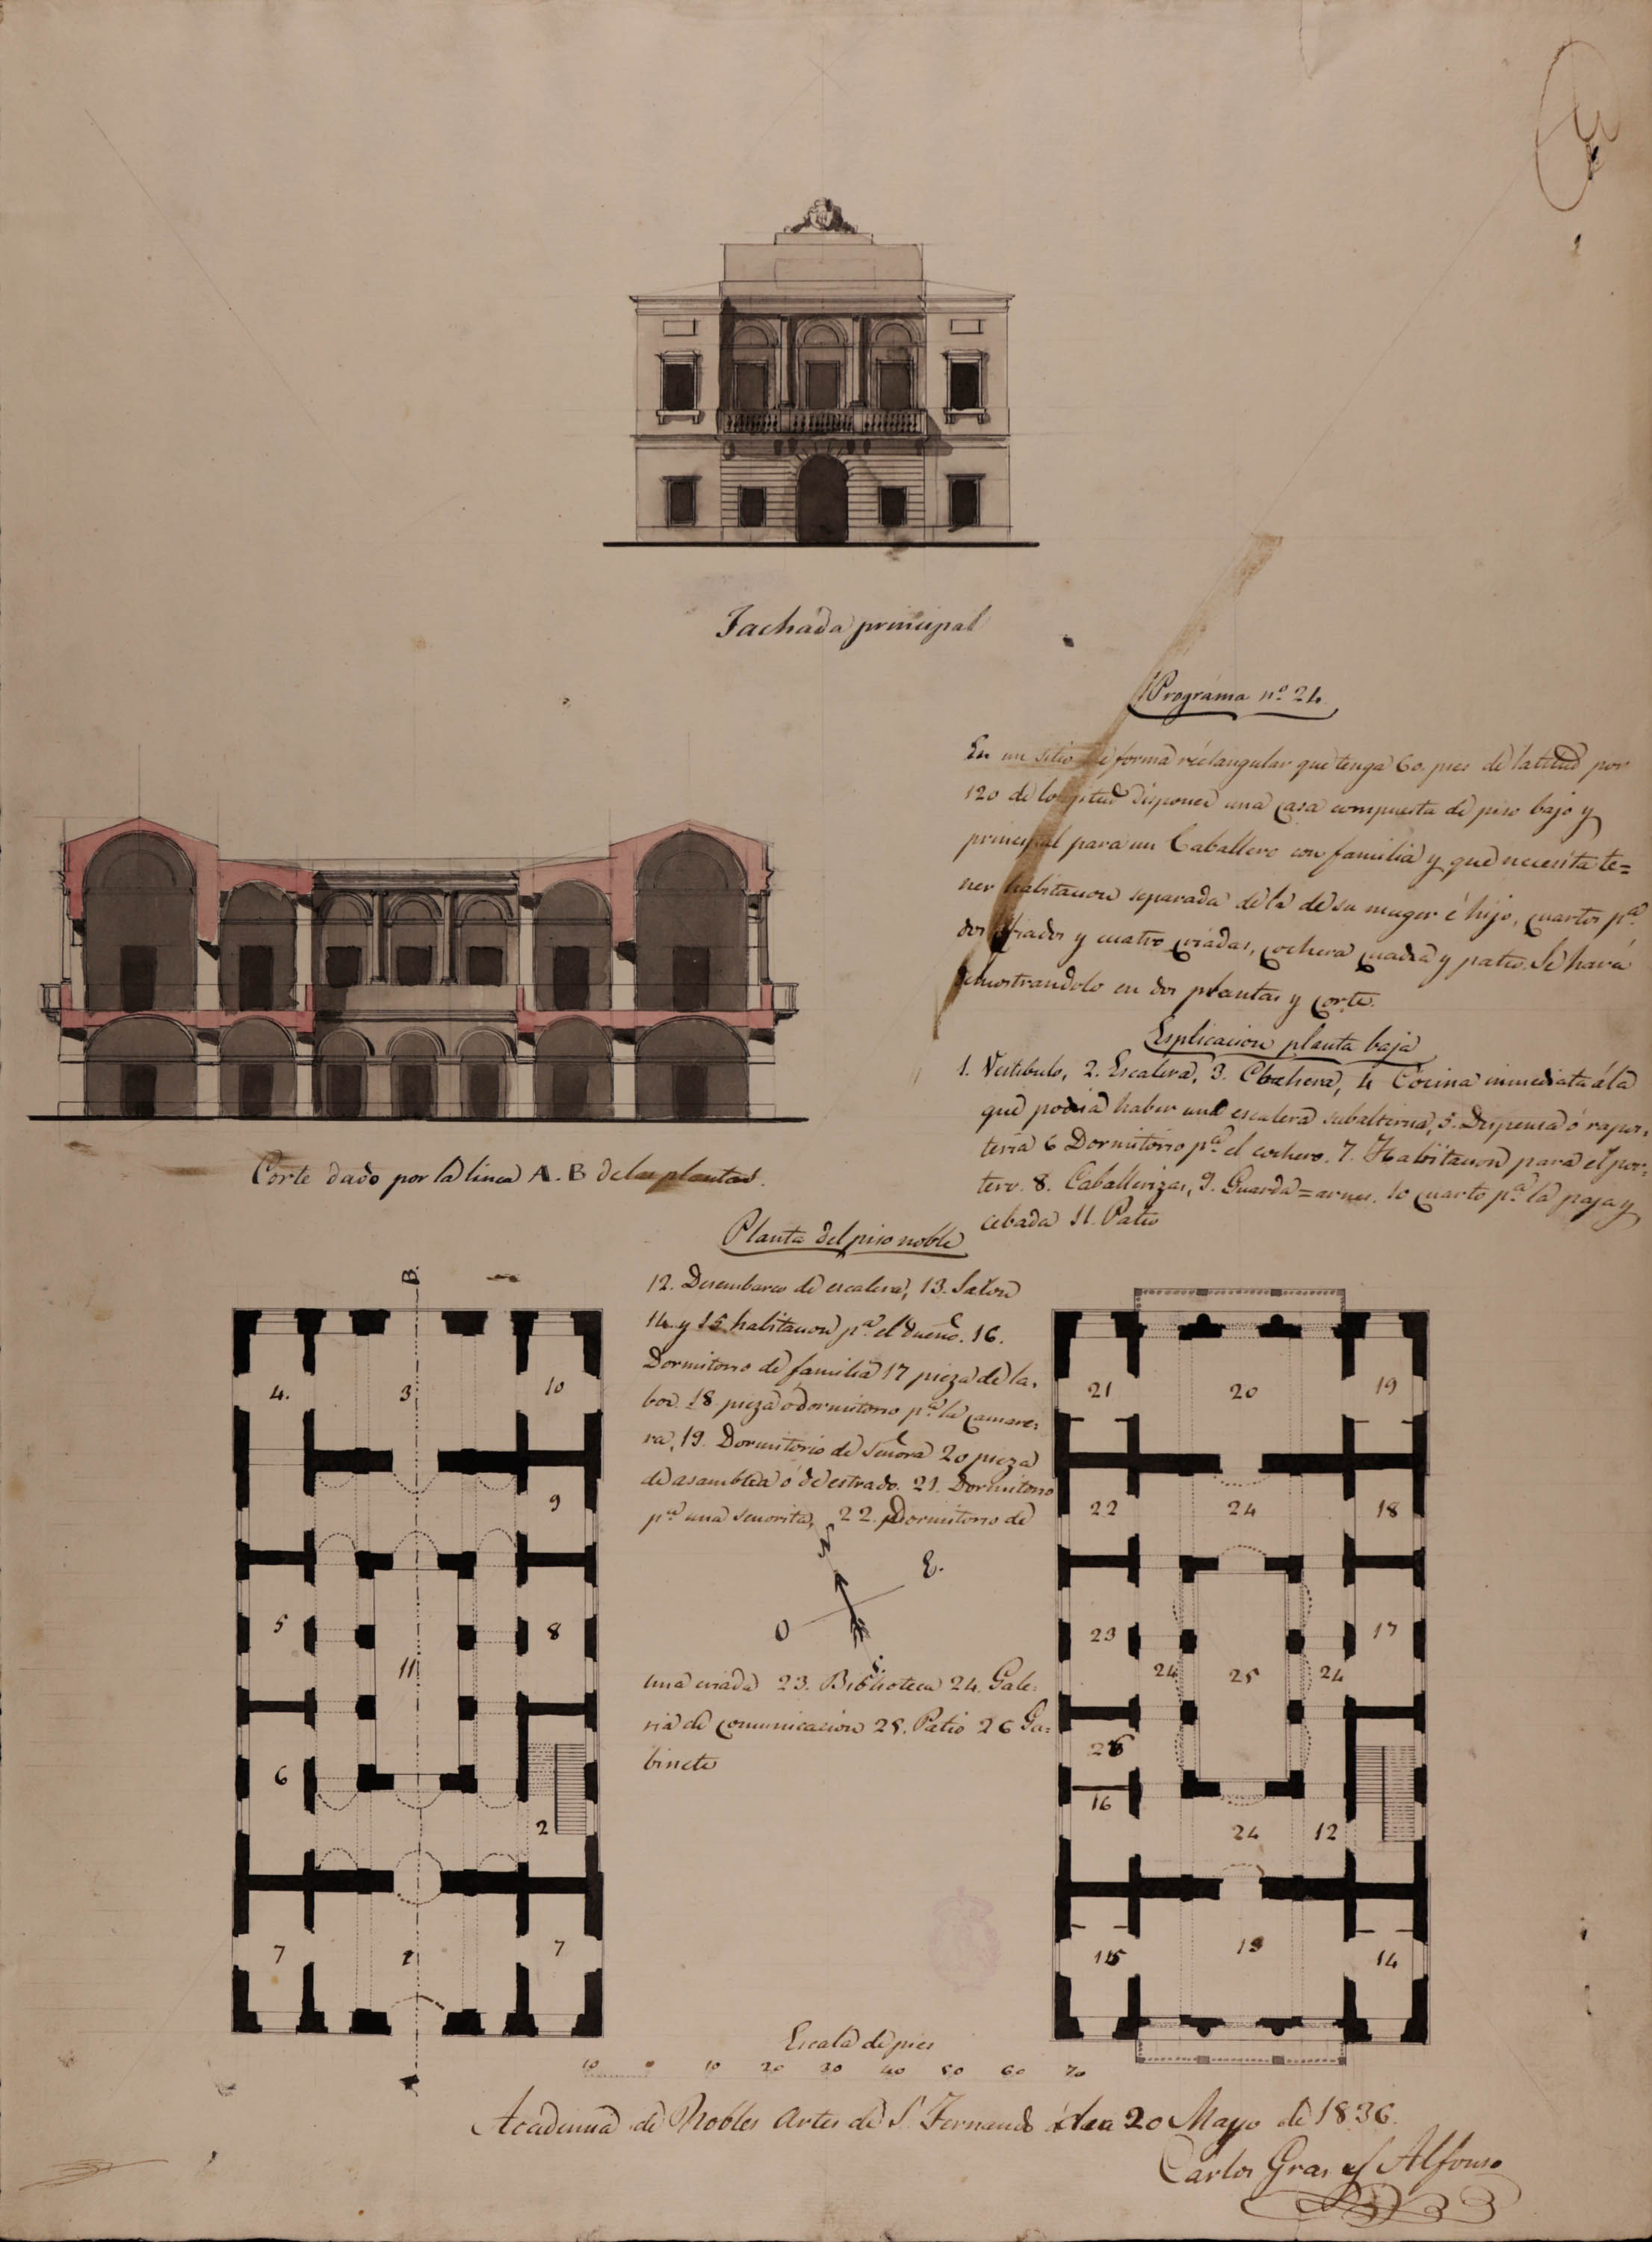 Fachada principal
Programa nº 24
En un sitio de forma réctangular que tenga 60. pies de latitud por
120 de longitud disponer una casa compuesta de piso bajo y
principal para un Caballero con familia y que necesita te=
ner habitacion separada de la de su muger é hijo, cuartos pª
dos criados y cuatro criadas, cochera cuadra y patio. Se hará
demostrandolo en dos plantas y corte.
Esplicacion planta baja
1. Vestibulo, 2. Escalera, 3. Cochera, 4 Cocina inmediata á la
que podria haber una escalera subalterna, 5. Dispensa ó repos-
teria 6 Dormitorio pª el cochero. 7. Habitacion para el por-
tero. 8. Caballerizas, 9. Guarda=arnes. 10 cuarto pª la paja y
cebada 11. Patio
Corte dado por la linea A. B de las plantas.
Planta del piso noble
12. Desembarco de escalera, 13. Salon
14 y 15 habitacion pª el dueño. 16.
Dormitorio de familia 17 pieza de la-
bor. 18 pieza ó dormitorio pª la camare-
ra, 19. Dormitorio de Señora 20 pieza
de asamblea ó de estrado. 21. Dormitorio
pª una señorita, 22. Dormitorio de
una criada 23. Biblioteca 24. Gale-
ria de comunicacion 25. Patio 26 Ga-
binete
N
E.
O
S.
B.
4. 3 10
9
5 8
11
6
2
7 1 7
A
21 20 19
22 24 18
23 17
24 25 24
26
16
24 12
15 13 14
Escala de pies
10 0 10 20 30 40 50 60 70
Academia de Nobles Artes de S. Fernando 20 Mayo de 1836.
Carlos Gras y Alfonso